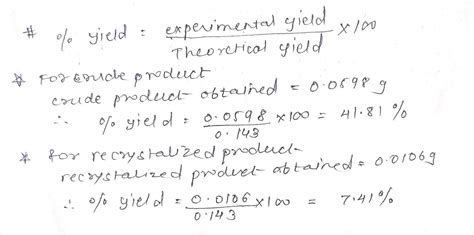 # % yield = experimental yield / Theoretical yield x 100
* For crude product
crude product obtained = 0.0598 g
∴ % yield = 0.0598 / 0.143 x100 = 41.81 %
* for recrystalized product
recrystalized product obtained = 0.0106g
∴ % yield = 0.0106 / 0.143 x 100 = 7.41%